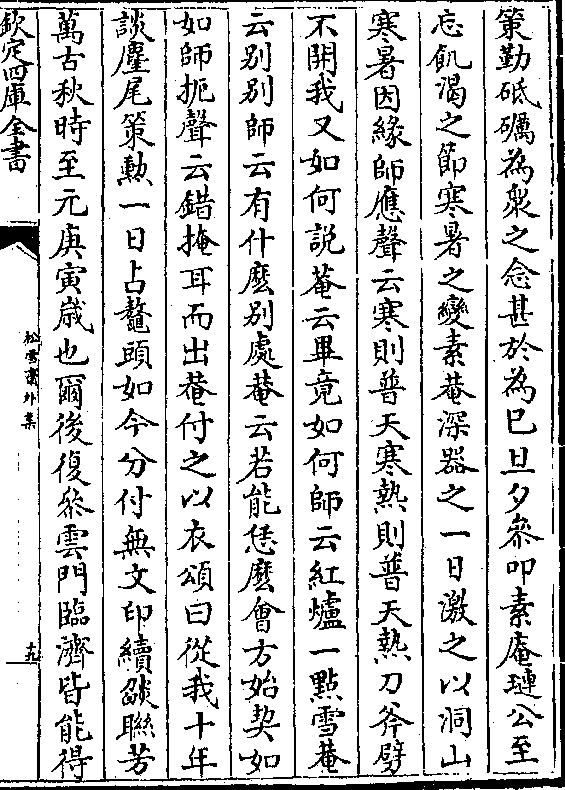 策勤砥礪為衆之念甚於為已旦夕參叩素庵璉公至
忘飢渴之節寒暑之變素菴深器之一日激之以洞山
寒暑因緣師應聲云寒則普天寒熱則普天熱刀斧劈
不開我又如何説菴云畢竟如何師云紅爐一點雪菴
云别别師云有什麽别處菴云若能恁麽會方始契如
如師扼聲云錯掩耳而出菴付之以衣頌曰從我十年
談麈尾策勲一日占鼇頭如今分付無文印續燄聯芳
萬古秋時至元庚寅歳也爾後復叅雲門臨濟皆能得
欽定四庫全書
松雪齋外集
十九